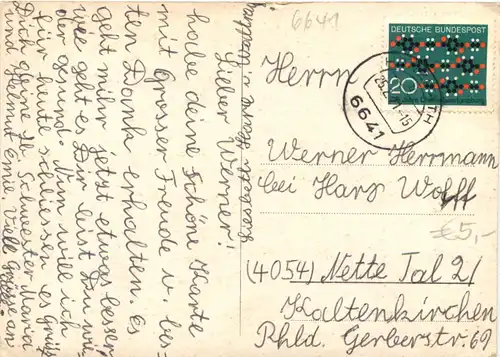 Lieber Werner!
habe deine schöne Karte
mit Grosser Freude u. bes=
ten Dank erhalten. Es
geht mihr jetzt etwas besser
wie geht es Dir bist Du wie=
der gesund. Nun will ich
für heute schliessen es Grüs
Dich gerne Schwester Maria
und Helmut Emil Viele Grüsse an
6641
DEUTSCHE BUNDESPOST
20
6641
Herrn
Werner Herrmann
bei Hars Wolff
€5,-
(4054) Nette Tal 2/
Kaltenkirchen
Rhld. Gerberstr. 69